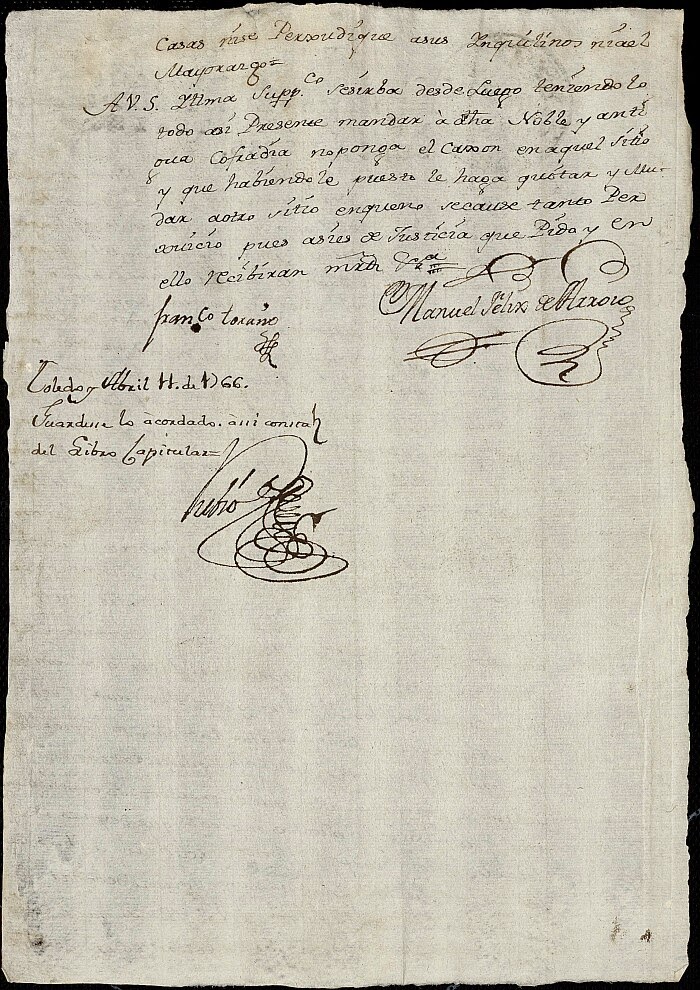 Casas nise Perxudique asus Ynquilinos niael
Mayorazgo=
AV.S. Yltma Supp.co sesirba desde Luego teniendo lo
todo asi Presente mandar à dha Noble y anti
gua Cofradia noponga el Caxon enaquel Sitio
y que habiendole puesto le haga quitar y Mu-
dar aotro sitio enqueno secause tanto Per
xuicio pues asies de Justicia que Pido y en
ello recibiran mrd &a
Franco toraño
Manuel Felix de Arroio
Toledo y Abril 11. de 1766.
Guardese lo àcordado. àssi consta
del Libro Capitular=
Rubio